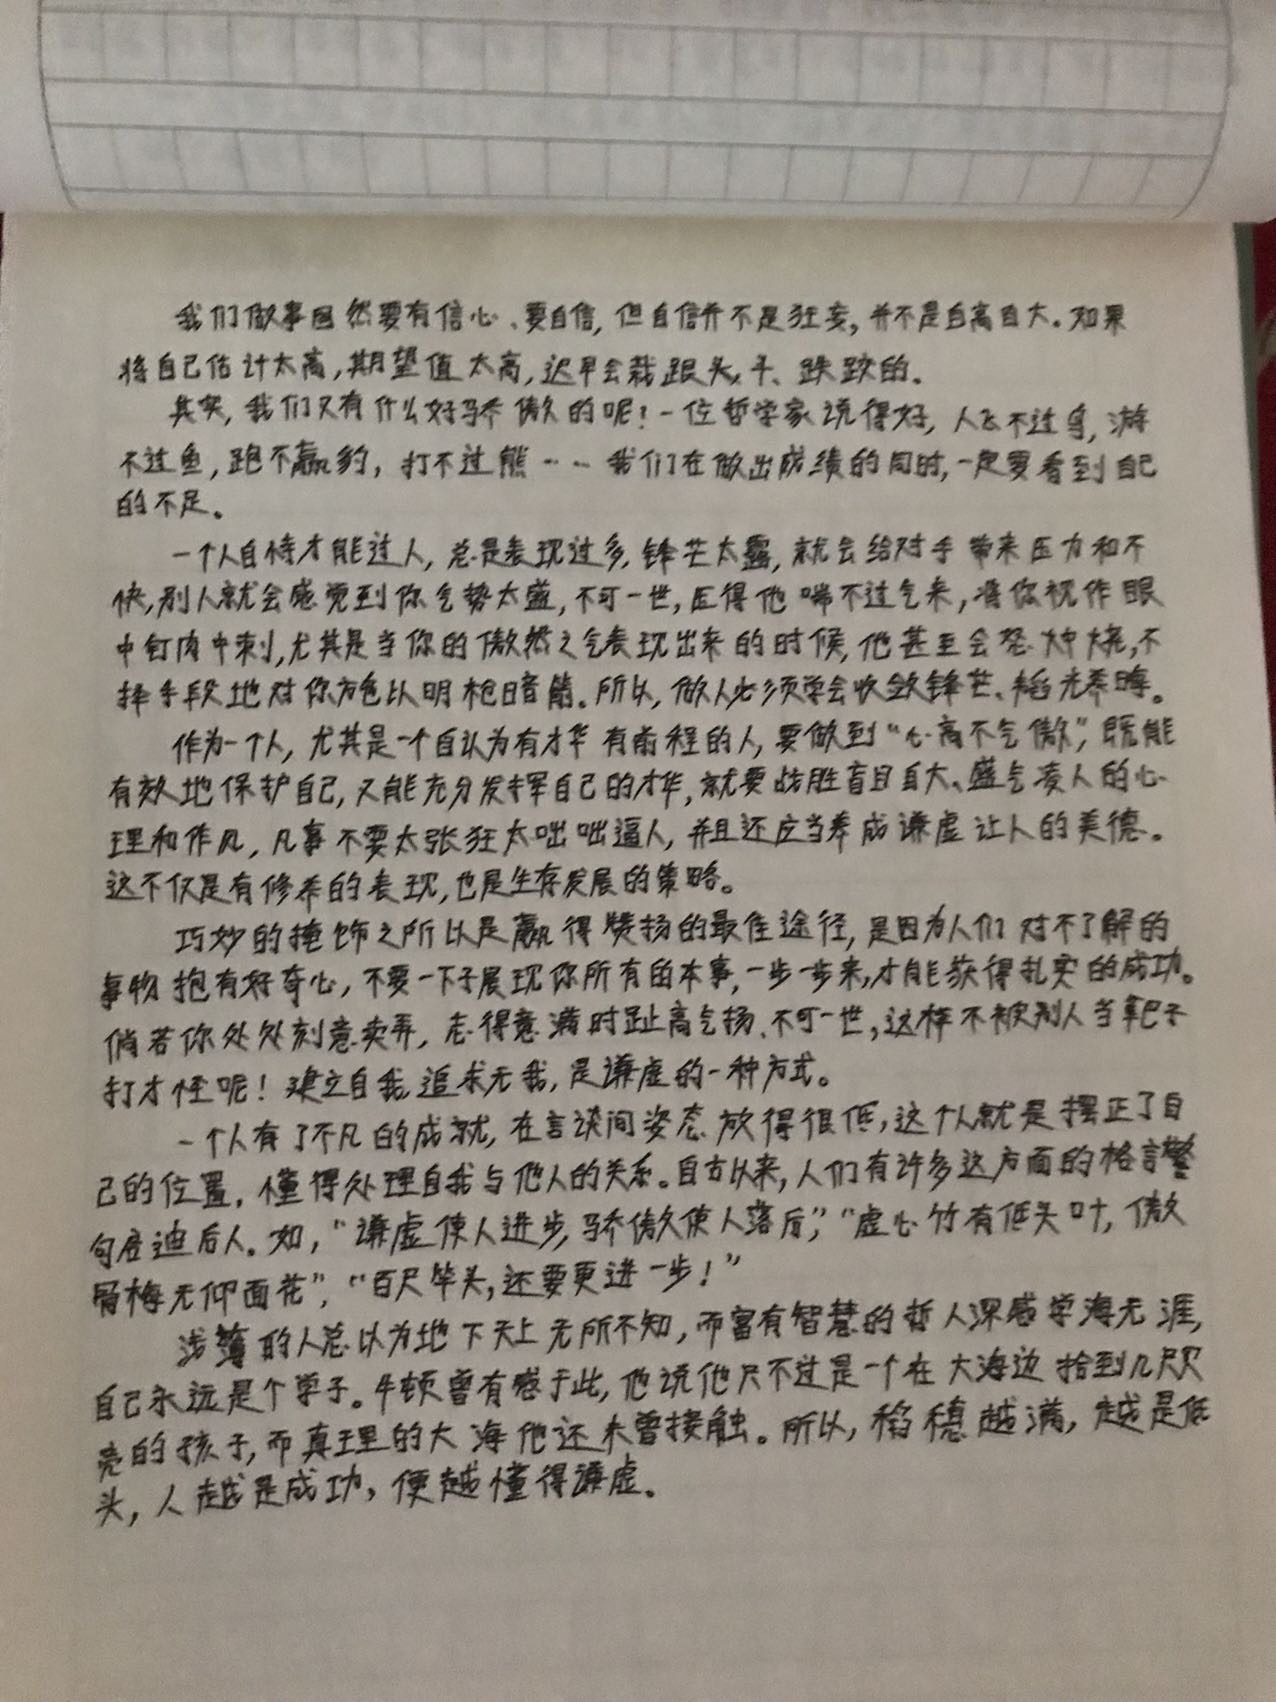 我们做事固然要有信心、要自信,但自信并不是狂妄,并不是自高自大。如果
将自己估计太高,期望值太高,迟早会栽跟头、跌跤的。
其实,我们又有什么好骄傲的呢!一位哲学家说得好,人飞不过鸟,游
不过鱼,跑不赢豹,打不过熊……我们在做出成绩的同时,一定要看到自己
的不足。
一个人自恃才能过人,总是表现过多,锋芒太露,就会给对手带来压力和不
快,别人就会感觉到你气势太盛,不可一世,压得他喘不过气来,将你视作眼
中钉肉中刺,尤其是当你的傲然之气表现出来的时候,他甚至会怒火中烧,不
择手段地对你施以明枪暗箭。所以,做人必须学会收敛锋芒、韬光养晦。
作为一个人,尤其是一个自认为有才华有前程的人,要做到“心高不气傲”,既能
有效地保护自己,又能充分发挥自己的才华,就要战胜盲目自大、盛气凌人的心
理和作风,凡事不要太张狂太咄咄逼人,并且还应当养成谦虚让人的美德。
这不仅是有修养的表现,也是生存发展的策略。
巧妙的掩饰之所以是赢得赞扬的最佳途径,是因为人们对不了解的
事物抱有好奇心,不要一下子展现你所有的本事,一步一步来,才能获得扎实的成功。
倘若你处处刻意卖弄,志得意满时趾高气扬、不可一世,这样不被别人当靶子
打才怪呢!建立自我,追求无我,是谦虚的一种方式。
一个人有了不凡的成就,在言谈间姿态放得很低,这个人就是摆正了自
己的位置,懂得处理自我与他人的关系。自古以来,人们有许多这方面的格言警
句启迪后人。如,“谦虚使人进步,骄傲使人落后”,“虚心竹有低头叶,傲
骨梅无仰面花”,“百尺竿头,还要更进一步!”
浅薄的人总以为地下天上无所不知,而富有智慧的哲人深感学海无涯,
自己永远是个学子。牛顿曾有感于此,他说他只不过是一个在大海边拾到几只贝
壳的孩子,而真理的大海他还未曾接触。所以,稻穗越满,越是低
头,人越是成功,便越懂得谦虚。